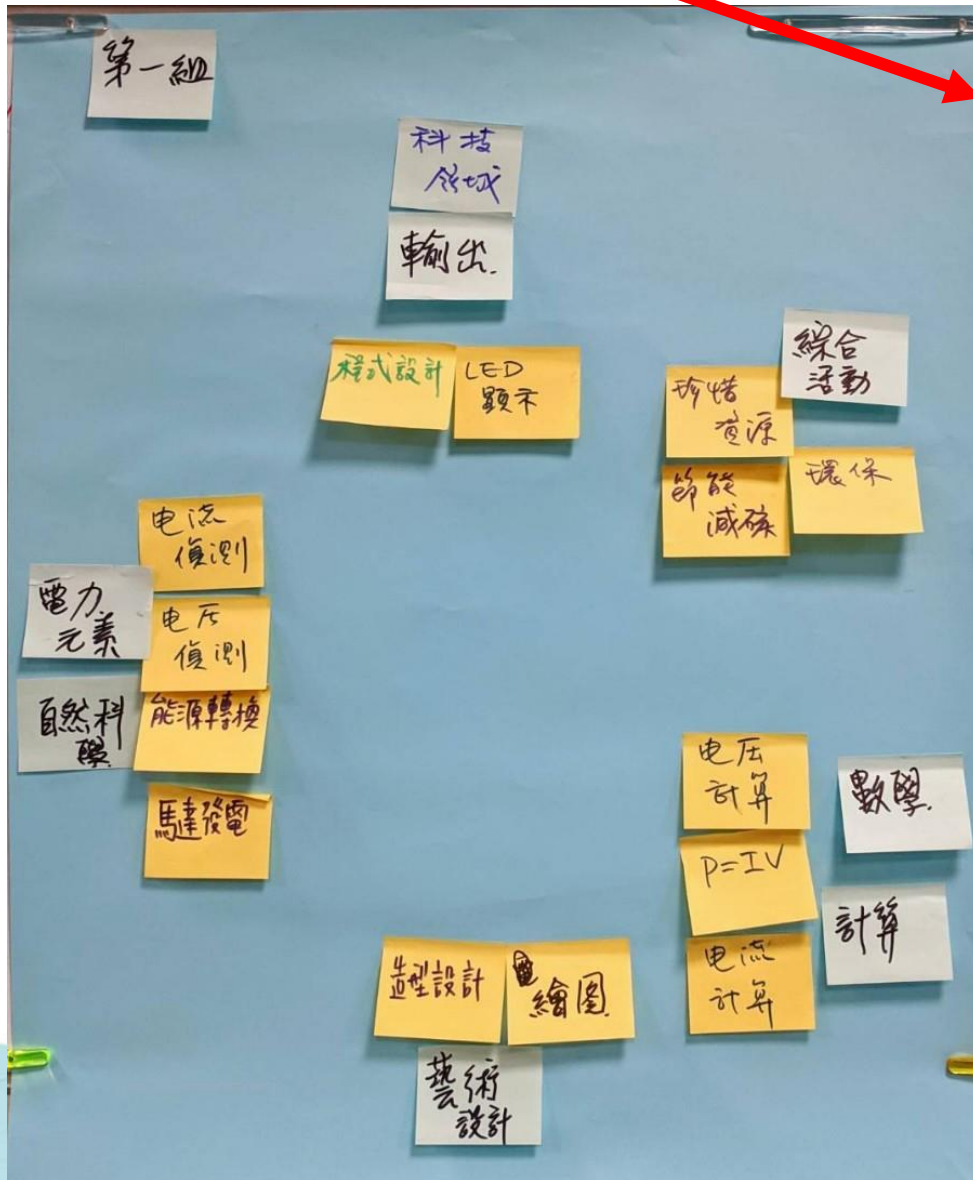 第一組
科技
領域
輸出.
程式設計
LED
顯示
綜合
活動
珍惜
資源
節能
減碳
環保
电流
偵測
電力
元素
电压
偵測
自然科
學
能源轉換
馬達發電
电压
計算
數學.
P=IV
計算
电流
計算
造型設計
繪圖
藝術
設計